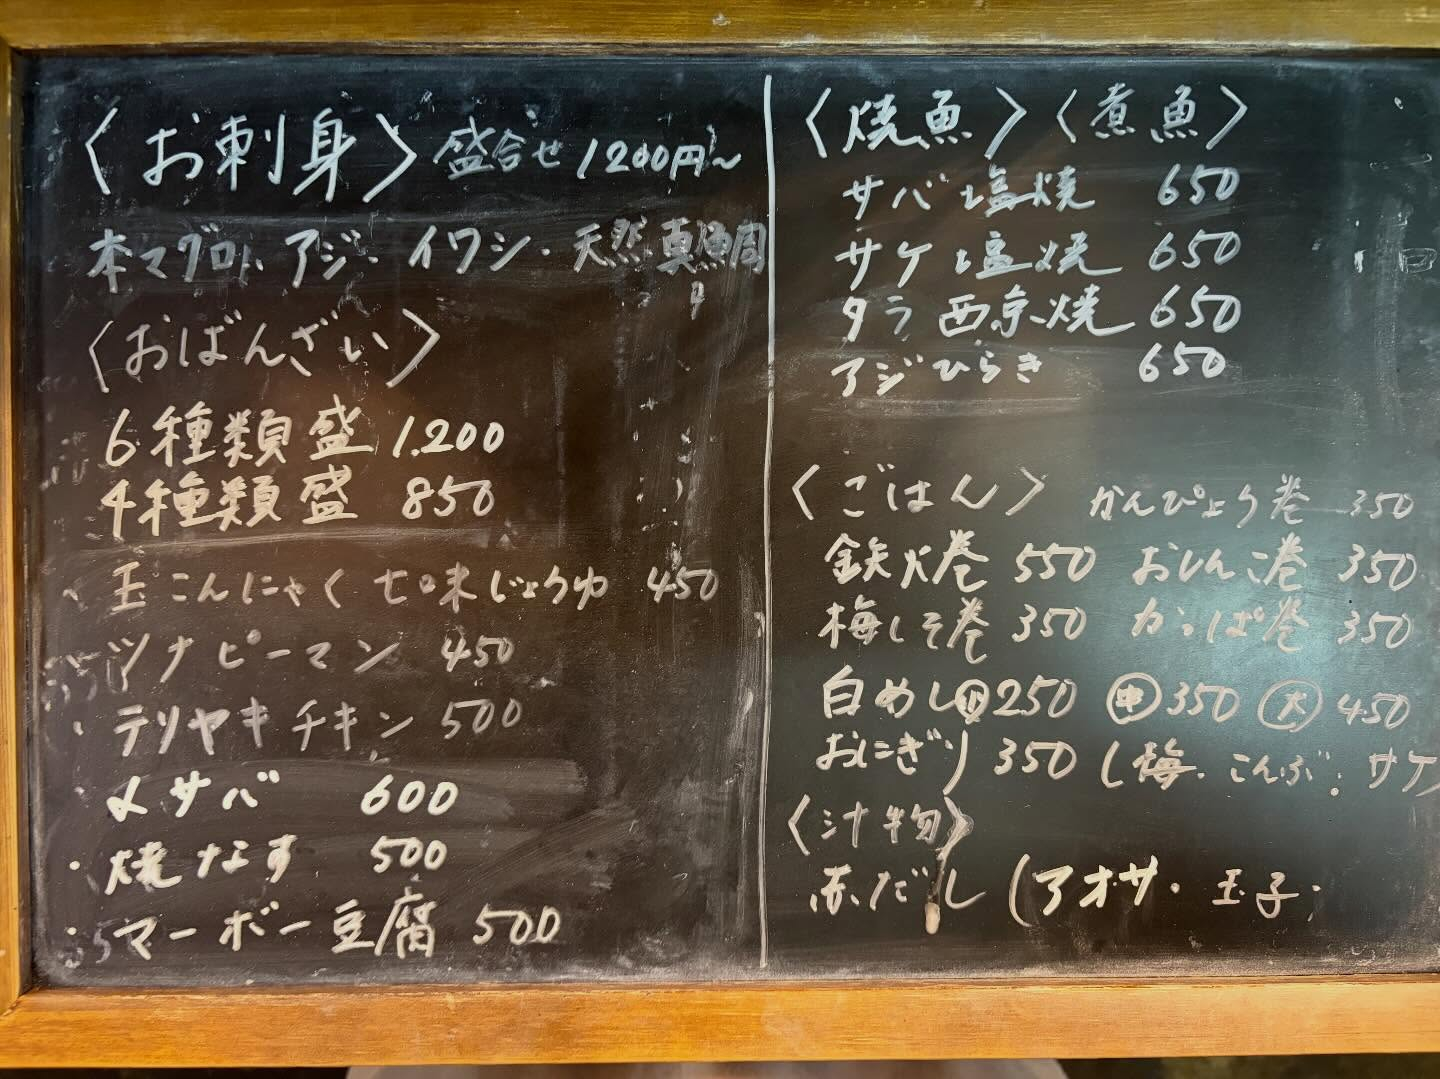 〈お刺身〉盛合せ 1200円〜
本マグロ、アジ・イワシ・天然真鯛
〈おばんざい〉
6種類盛 1.200
4種類盛 850
玉こんにゃく 七味じょうゆ 450
ツナピーマン 450
テリヤキチキン 500
〆サバ 600
・焼なす 500
・マーボー豆腐 500
〈焼魚〉〈煮魚〉
サバ塩焼 650
サケ塩焼 650
タラ西京焼 650
アジひらき 650
〈ごはん〉 かんぴょう巻 350
鉄火巻 550 おしんこ巻 350
梅しそ巻 350 かっぱ巻 350
白めし㊙250 ㊥350 大 450
おにぎり 350 (梅・こんぶ・サケ
〈汁物〉
赤だし (アオサ・玉子・